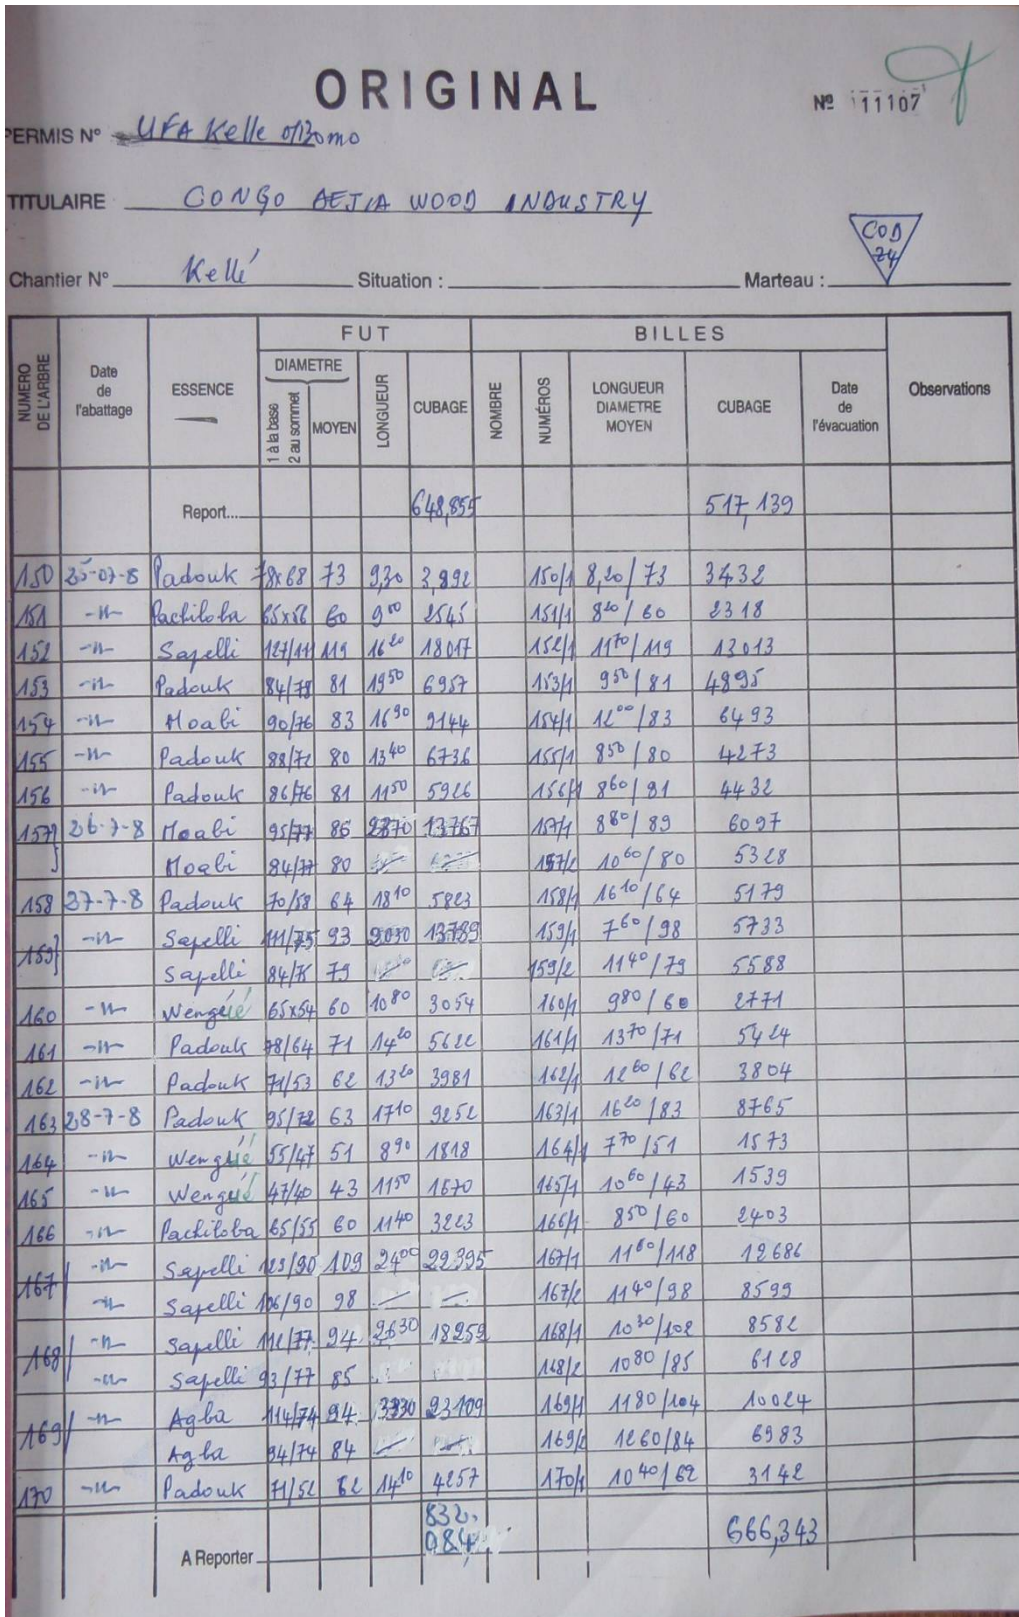 ORIGINAL
Nº 11107
PERMIS Nº UFA Kelle
TITULAIRE CONGO DEJIA WOOD INDUSTRY
COD
24
Chantier Nº Kellé Situation : Marteau :
FUT BILLES
NUMERO DE L'ARBRE Date de l'abattage ESSENCE DIAMETRE 1 à la base 2 au sommet MOYEN LONGUEUR CUBAGE NOMBRE NUMÉROS LONGUEUR DIAMETRE MOYEN CUBAGE Date de l'évacuation Observations
Report... 648,855 517,139
150 25-07-8 Padouk 78x68 73 9,30 3,892 150/1 8,20/73 3432
151 -"- Pachiloba 65x56 60 9 00 2545 151/1 8 20/60 2318
152 -"- Sapelli 127/111 119 16 20 18017 152/1 11 70/119 13013
153 -"- Padouk 84/78 81 13 50 6957 153/1 9 50/81 4895
154 -"- Moabi 90/76 83 16 90 9144 154/1 12 00/83 6493
155 -"- Padouk 88/72 80 13 40 6736 155/1 8 50/80 4273
156 -"- Padouk 86/76 81 11 50 5926 156/1 8 60/81 4432
157 26-7-8 Moabi 95/77 86 2370 13767 157/1 8 80/89 6097
Moabi 84/77 80 157/2 10 60/80 5328
158 27-7-8 Padouk 70/58 64 18 10 5823 158/1 16 10/64 5179
159 -"- Sapelli 111/75 93 13789 159/1 7 60/98 5733
Sapelli 84/75 79 159/2 11 40/79 5588
160 -"- Wengué 65x54 60 10 80 3054 160/1 9 80/60 2771
161 -"- Padouk 78/64 71 14 20 5622 161/1 13 70/71 5424
162 -"- Padouk 71/53 62 13 20 3981 162/1 12 60/62 3804
163 28-7-8 Padouk 95/72 63 17 10 9252 163/1 16 20/83 8765
164 -"- Wengué 55/47 51 8 90 1818 164/1 7 70/51 1573
165 -"- Wengué 47/40 43 11 50 1670 165/1 10 60/43 1539
166 -"- Pachiloba 65/55 60 11 40 3223 166/1 8 50/60 2403
167 -"- Sapelli 109 24 00 22395 167/1 11 60/118 12686
-"- Sapelli 106/90 98 167/2 11 40/98 8599
168 -"- Sapelli 112/77 94 26 30 18259 168/1 10 30/102 8582
-"- Sapelli 93/77 85 168/2 10 80/85 6128
169 -"- Agba 114/74 94 3330 23109 169/1 11 80/104 10024
Agba 94/74 84 169/2 12 60/84 6983
170 -"- Padouk 71/52 62 14 10 4257 170/1 10 40/62 3142
A Reporter 832.984 666,343